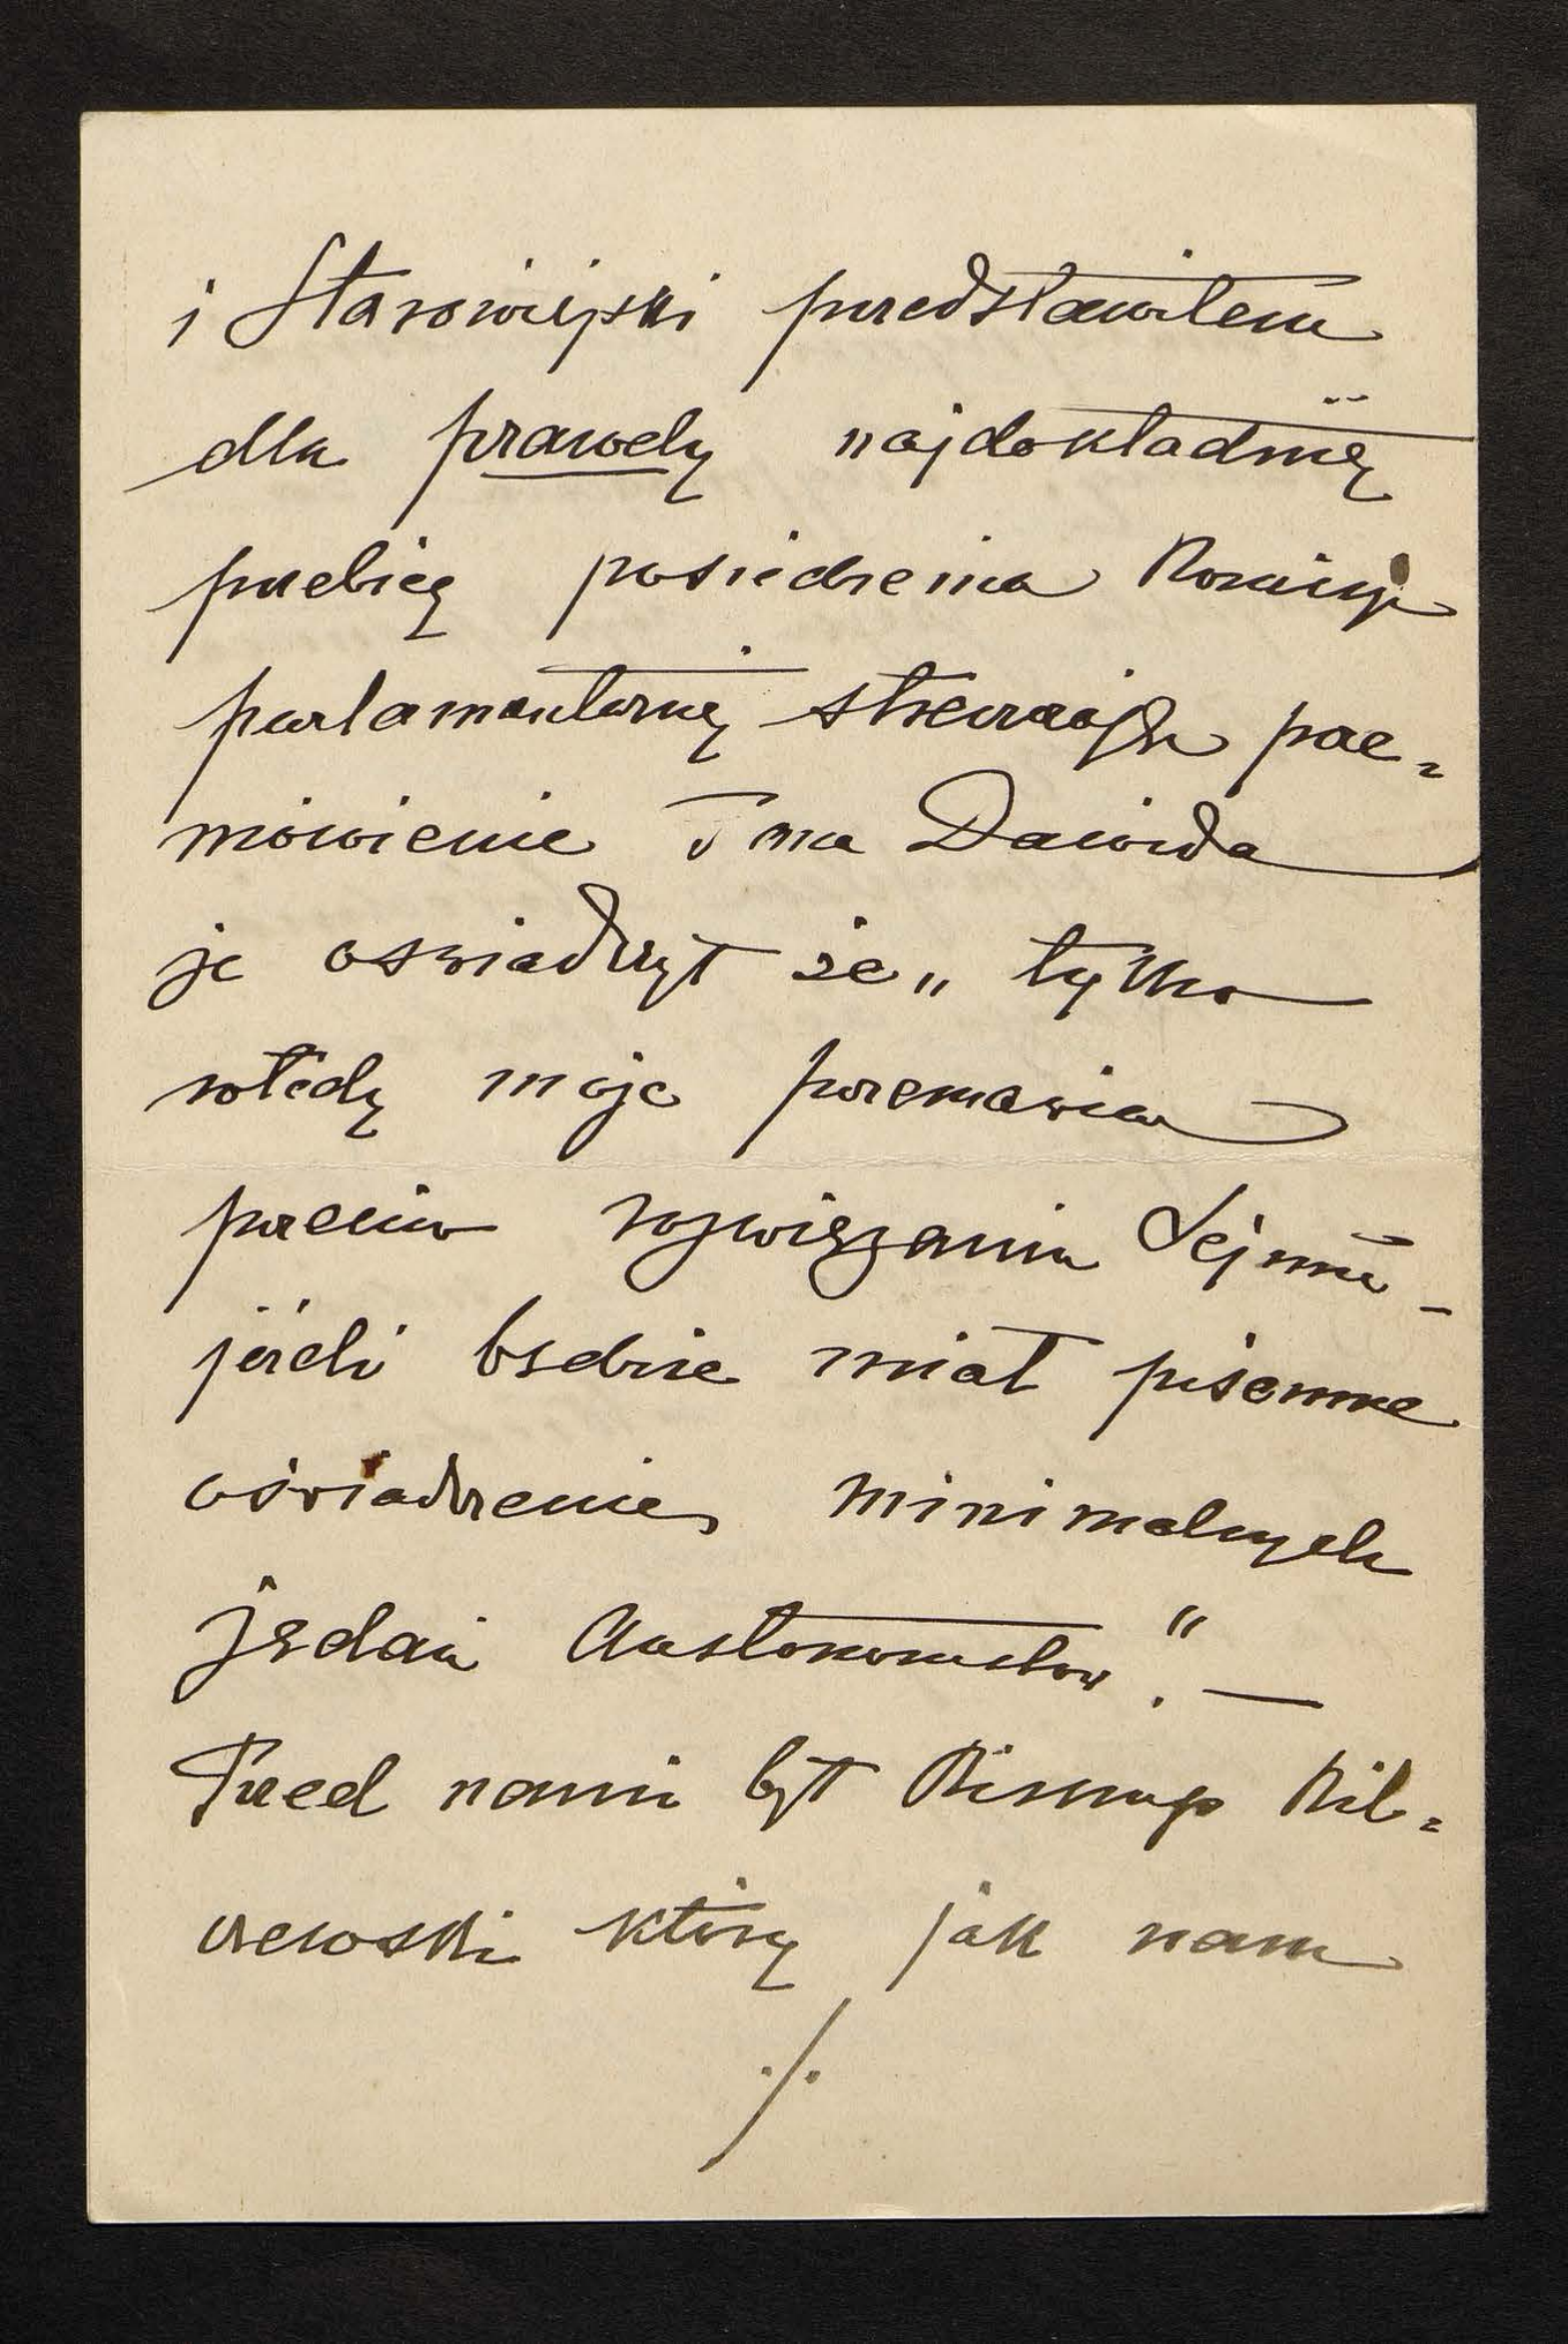 i Starowiejski przedstawiłem
dla prawdy najdokładniej
przebieg posiedzenia Komisyi
parlamentarnej streszczając prze=
mówienie Dawida
że oświadczył że „tylko
wtedy może przemawiać
przeciw rozwiązaniu Sejmu -
jeżeli będzie miał pisemne
oświadczenie minimalnych
żądań Autonomistów". —
Przed nami był Biskup Bil=
czewski który jak nam
./.